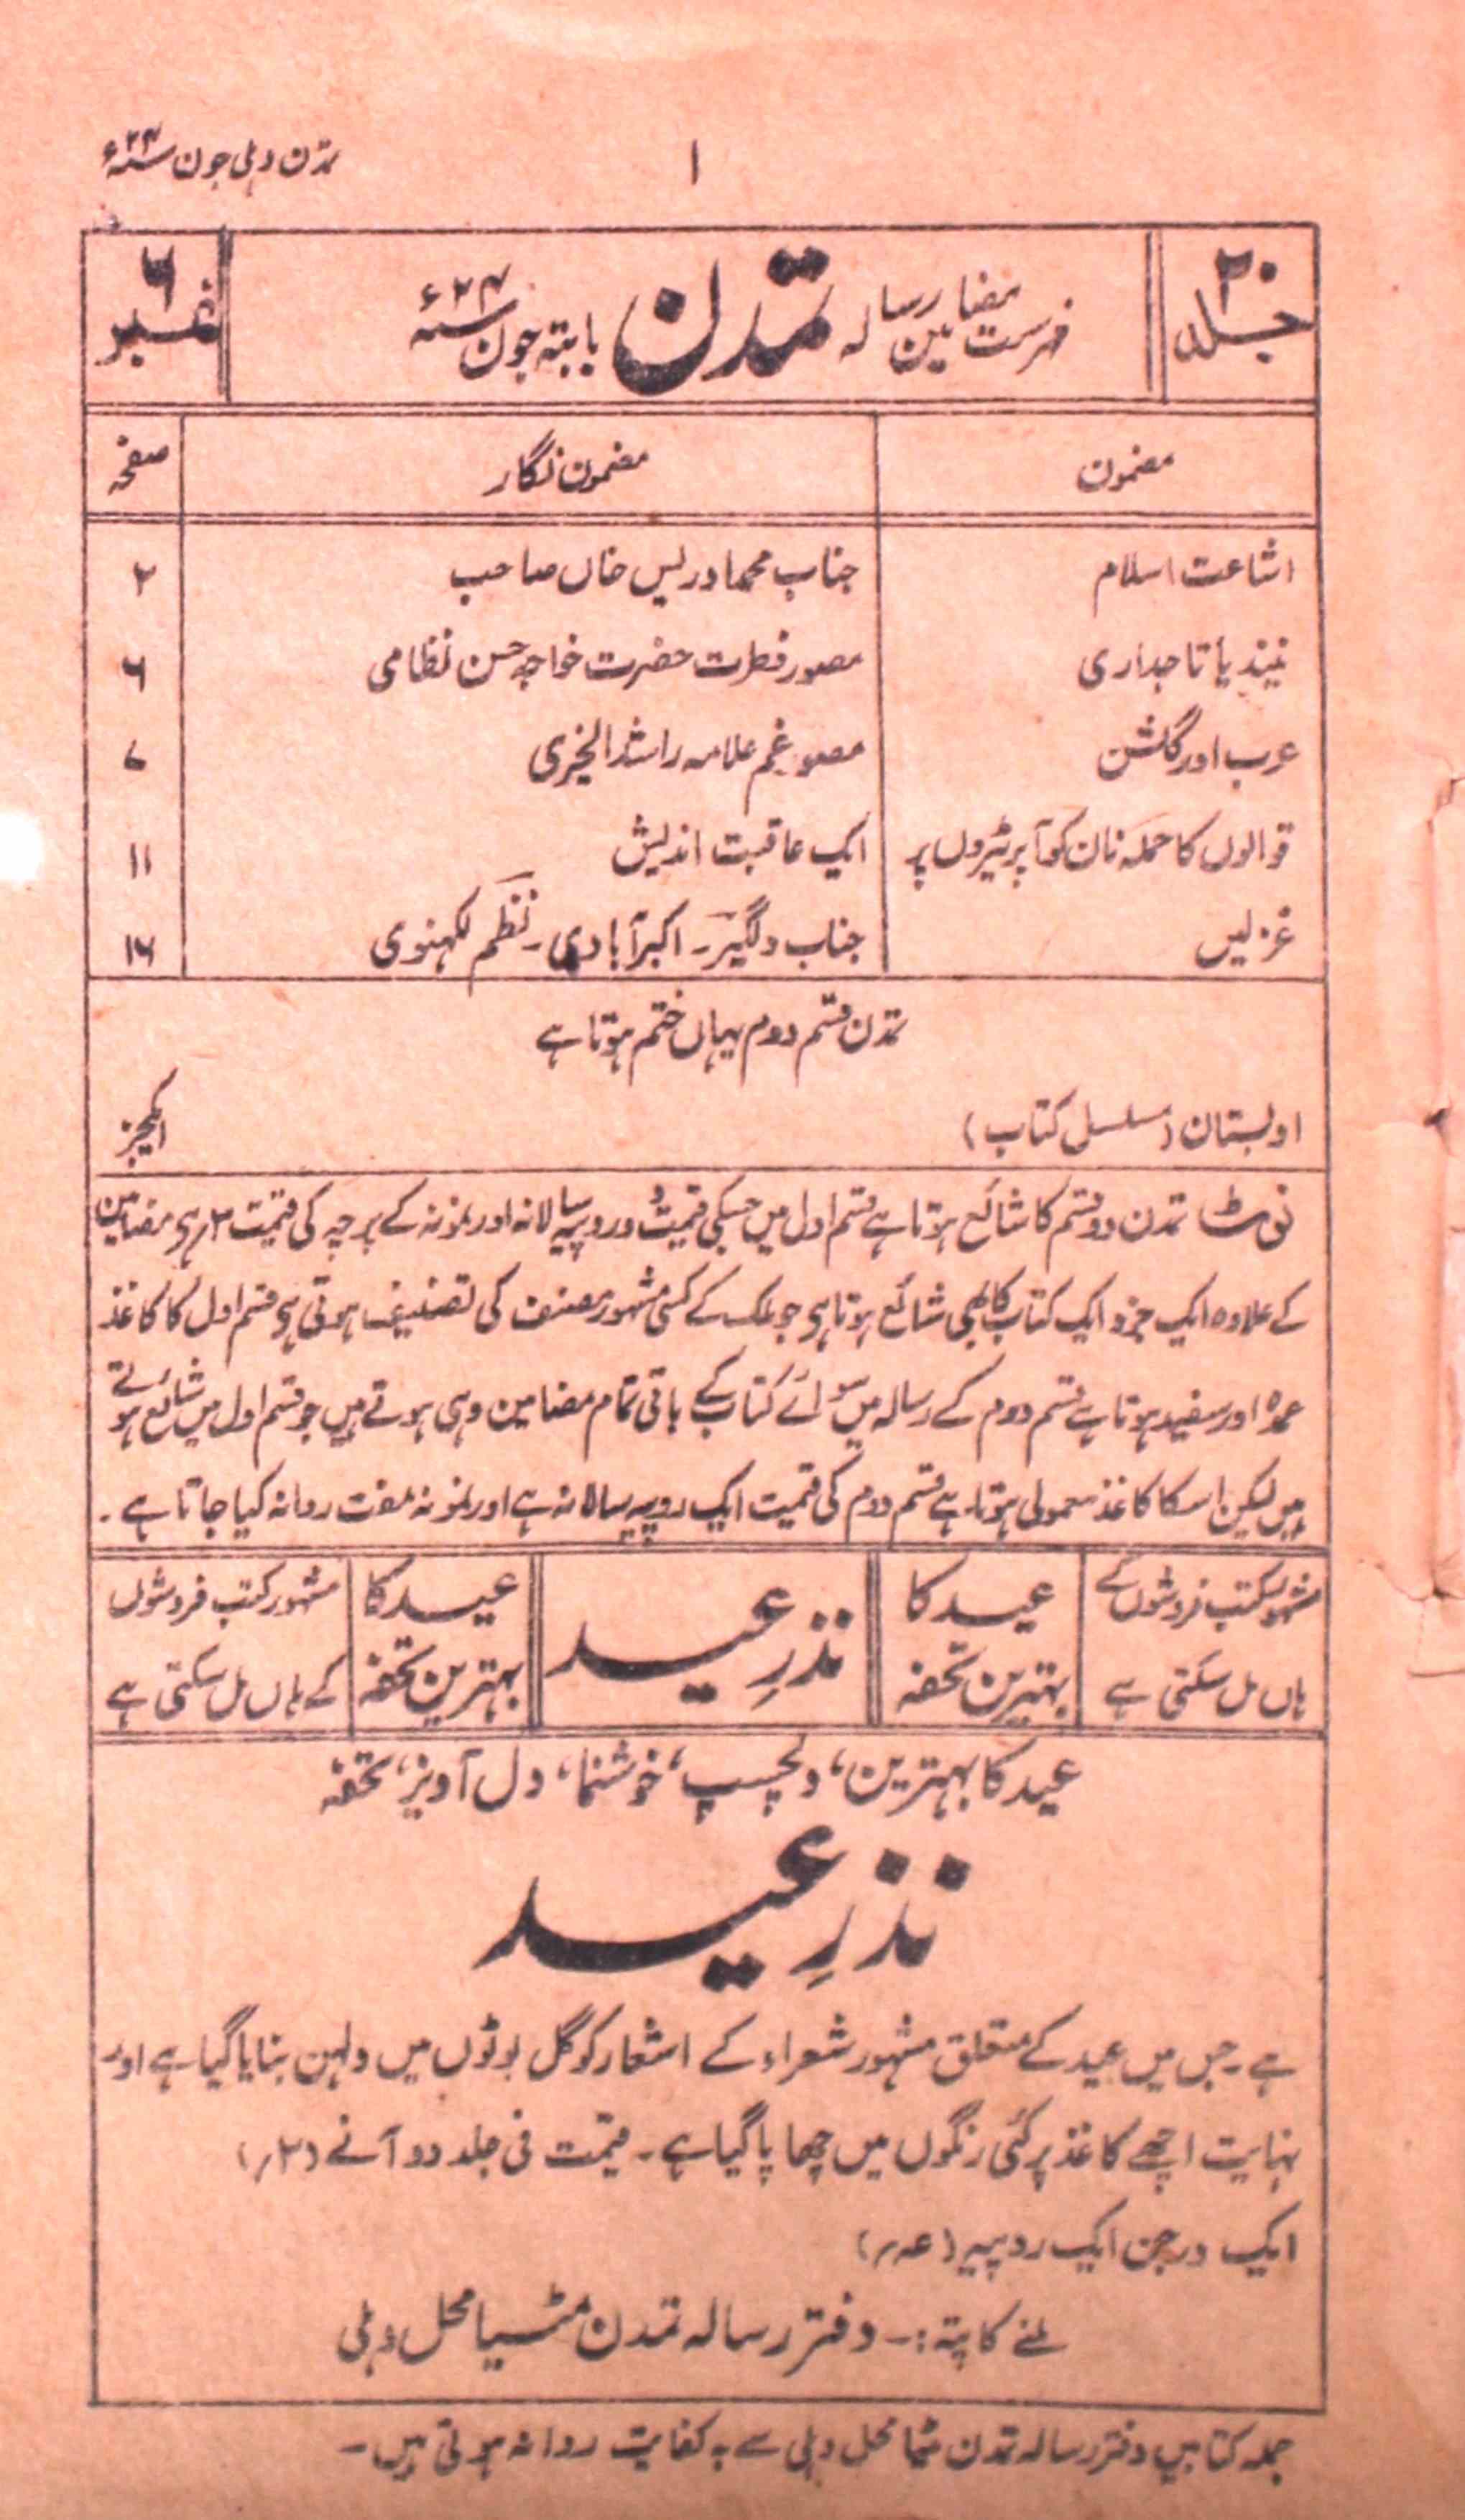 تمدن دہلی جون سنہ ۲۴ء
۱
جلد ۲۰
فہرست مضامین رسالہ تمدن بابتہ جون سنہ ۲۴ء
نمبر ۶
مضمون مضمون نگار صفحہ
اشاعت اسلام جناب محمد ادریس خاں صاحب ۲
نیند یا تاجداری مصور فطرت حضرت خواجہ حسن نظامی ۶
عرب اور گلشن مصور غم علامہ راشد الخیری ۷
قوالوں کا حملہ نان کوآپریٹروں پر ایک عاقبت اندیش ۱۱
غزلیں جناب دلگیر۔ اکبرآبادی۔ نظم لکہنوی ۱۶
تمدن قسم دوم یہاں ختم ہوتا ہے
اوبستان (مسلسل کتاب) ایکجز
نوٹ تمدن دو قسم کا شائع ہوتا ہے قسم اول میں جسکی قیمت دو روپیہ سالانہ اور نمونہ کے پرچہ کی قیمت ۳؍ ہی مضامین
کے علاوہ ایک جزو ایک کتاب کا بھی شائع ہوتا ہی جو ملک کے کسی مشہور مصنف کی تصنیف ہوتی ہی قسم اول کا کاغذ
عمدہ اور سفید ہوتا ہے قسم دوم کے رسالہ میں سوائے کتاب کے باقی تمام مضامین وہی ہوتے ہیں جو قسم اول میں شائع ہوتے
ہیں لیکن اسکا کاغذ معمولی ہوتا ہے قسم دوم کی قیمت ایک روپیہ سالانہ ہے اور نمونہ مفت روانہ کیا جاتا ہے۔
مشہور کتب فروشوں کے
ہاں مل سکتی ہے
عید کا
بہترین تحفہ
نذرِ عید
عید کا
بہترین تحفہ
مشہور کتب فروشوں
کے ہاں مل سکتی ہے
عید کا بہترین، دلچسپ، خوشنما، دل آویز، تحفہ
نذرِ عید
ہے۔ جس میں عید کے متعلق مشہور شعراء کے اشعار کو گل بوٹوں میں دلہن بنایا گیا ہے اور
نہایت اچھے کاغذ پر کئی رنگوں میں چھاپا گیا ہے۔ قیمت فی جلد دو آنے (۲؍)
ایک درجن ایک روپیہ (عہ؍)
ملنے کا پتہ:۔ دفتر رسالہ تمدن مٹیا محل دہلی
جملہ کتابیں دفتر رسالہ تمدن مٹیا محل دہلی سے بہ کفایت روانہ ہوتی ہیں۔